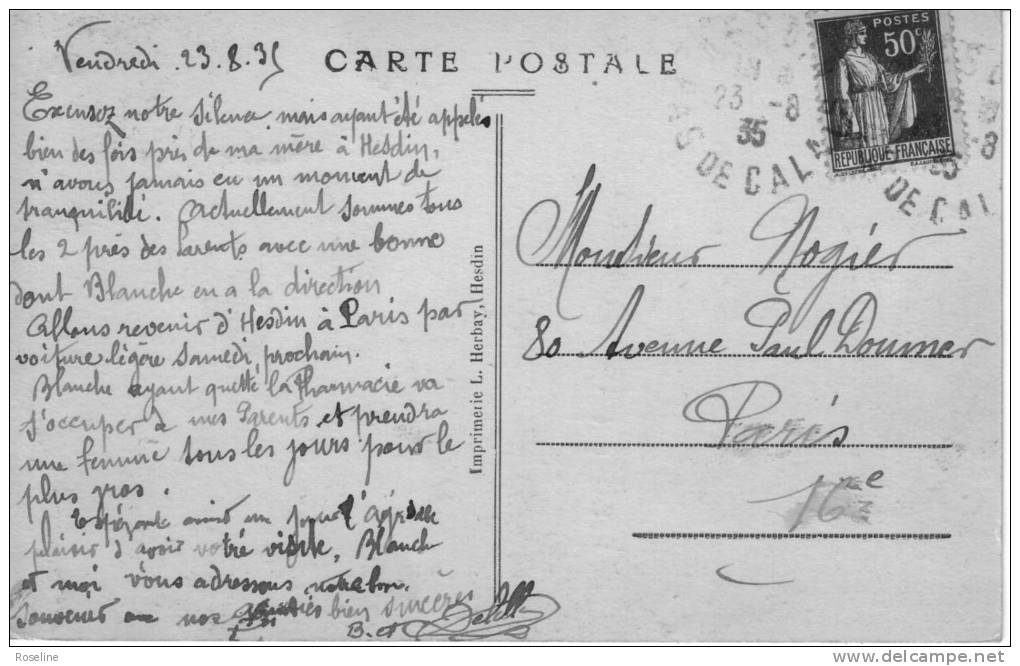 Vendredi 23.8.35
CARTE POSTALE
POSTES
50c
REPUBLIQUE FRANÇAISE
23 -8
35
PAS DE CALA
-8
35
DE CAL
Excusez notre silence mais ayant été appelés
bien des fois près de ma mère à Hesdin,
n'avons jamais eu un moment de
tranquilité. Actuellement sommes tous
les 2 près des Parents avec une bonne
dont Blanche en a la direction
Allons revenir d'Hesdin à Paris par
voiture légère samedi prochain.
Blanche ayant quitté la Pharmacie va
s'occuper à mes Parents et prendra
une femme tous les jours pour le
plus gros.
plaisir d'avoir votre visite, Blanche
et moi vous adressons notre bon
souvenir nos bien sincères
B. et
Imprimerie L. Herbay, Hesdin
Monsieur Nogier
80 Avenue Paul Doumer
Paris
16me
Roseline
delcampe.net